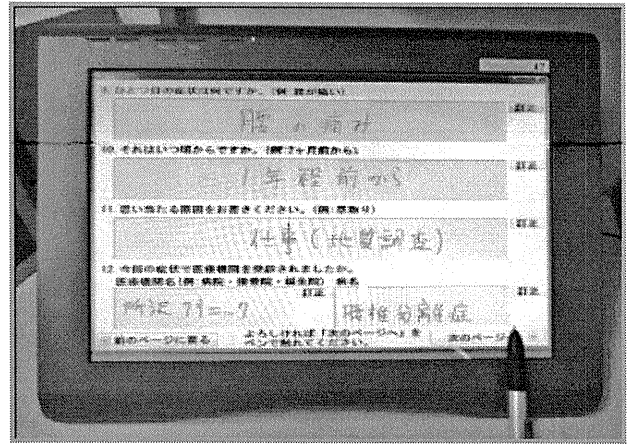 47
9. ひとつ目の症状は何ですか。(例:腰が痛い)
訂正
腰の痛み
10. それはいつ頃からですか。(例:2ヶ月前から)
訂正
1年程前から
11. 思い当たる原因をお書きください。(例:草取り)
訂正
仕事(地質調査)
12. 今回の症状で医療機関を受診されましたか。
医療機関名(例:病院・接骨院・鍼灸院) 病名
訂正 訂正
クリニック 腰椎分離症
前のページに戻る
よろしければ「次のページへ」を
ペンで触れてください。
次のページ